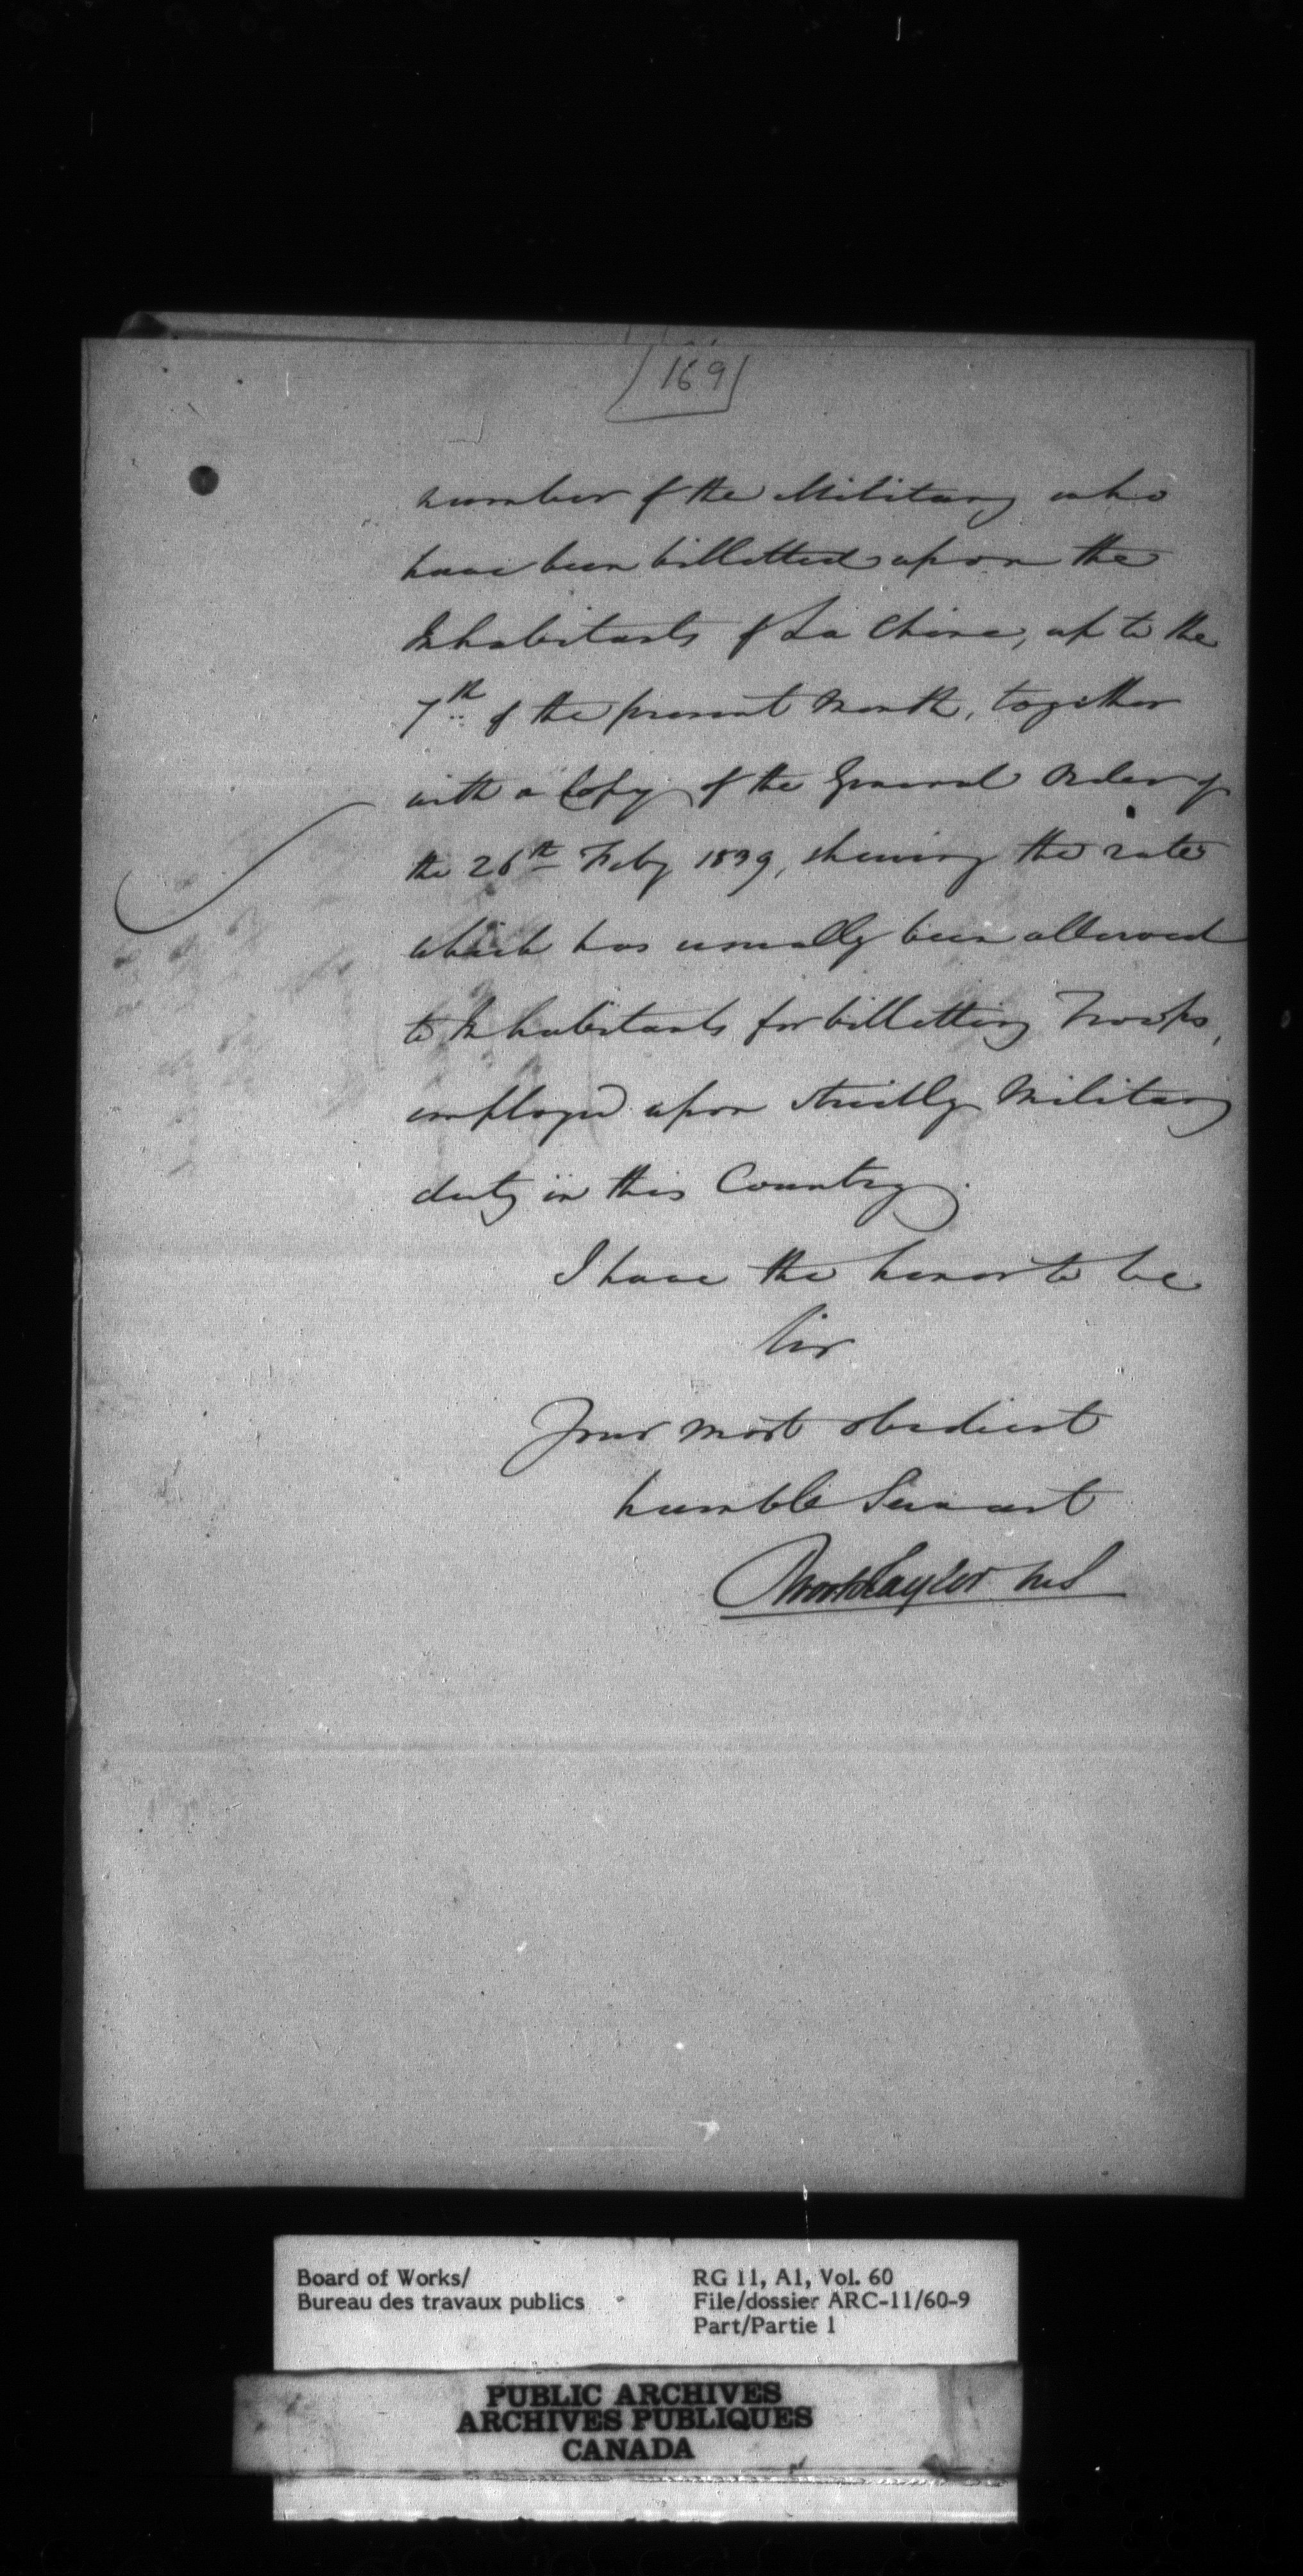 169
number of the Military who
have been billetted upon the
Inhabitants of La Chine, up to the
7th of the present Month, together
with a Copy of the General Order of
the 26th Feby 1839, shewing the rates
which has usually been allowed
to Inhabitants for billetting Troops,
employed upon strictly Military
duty in this Country.
I have the honor to be
Sir
Your most obedient
humble Servant
Taylor
Board of Works/
Bureau des travaux publics
RG 11, A1, Vol. 60
File/dossier ARC-11/60-9
Part/Partie 1
PUBLIC ARCHIVES
ARCHIVES PUBLIQUES
CANADA